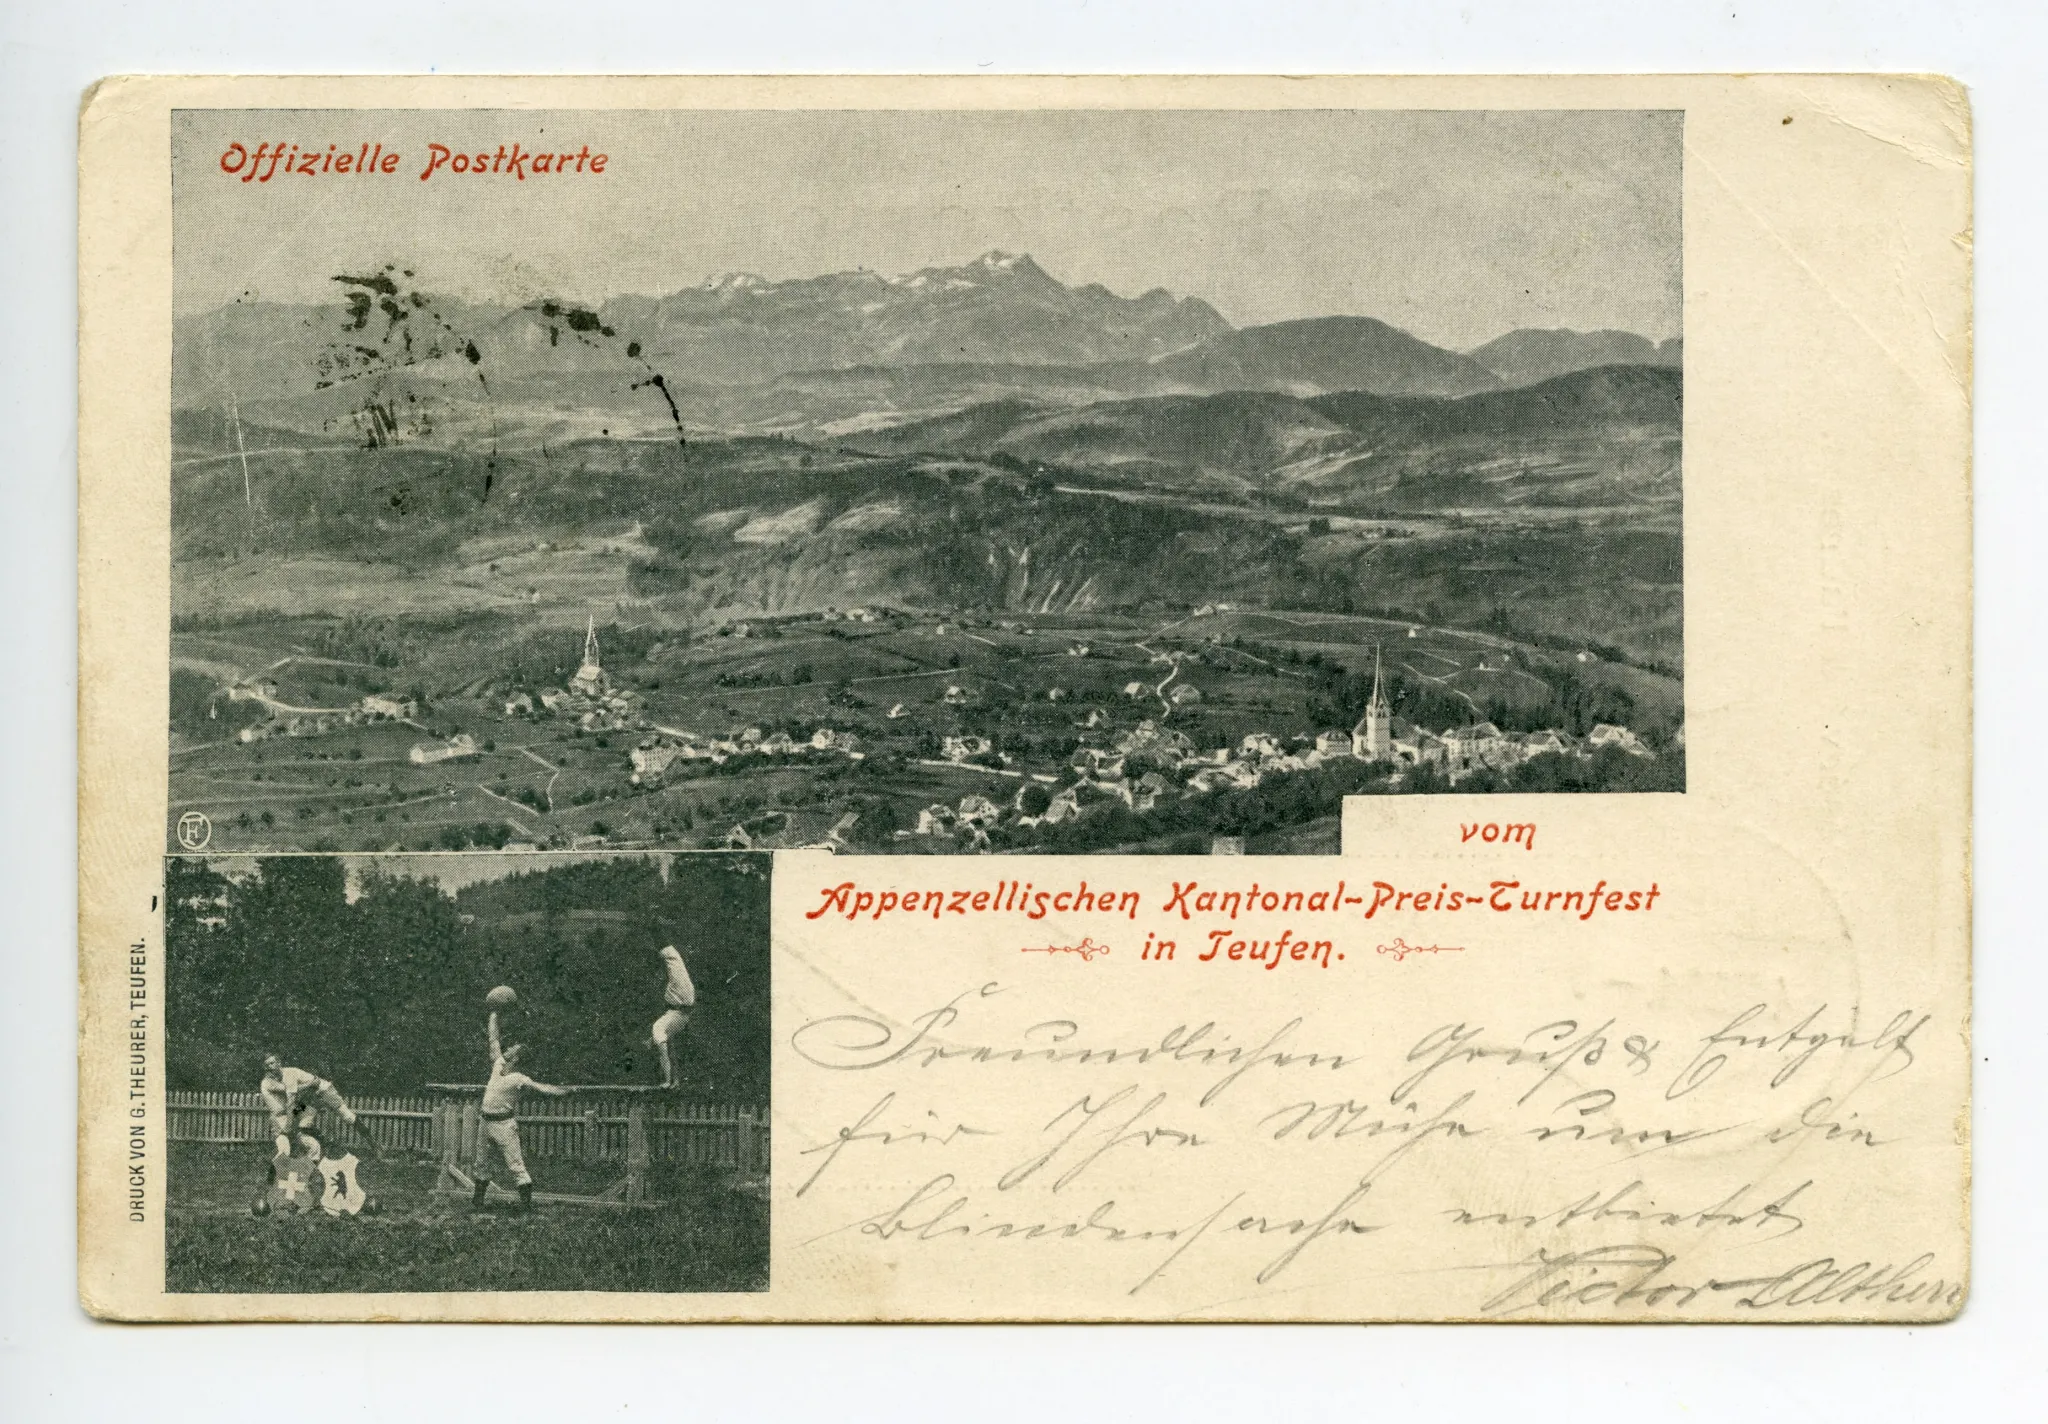 Offizielle Postkarte
F
vom
Appenzellischen Kantonal-Preis-Turnfest
in Teufen.
DRUCK VON G. THEURER, TEUFEN.
Freundlichen Gruß & Entgelt
für Ihre Mühe um die
Blindensache entbietet
Victor Altherr